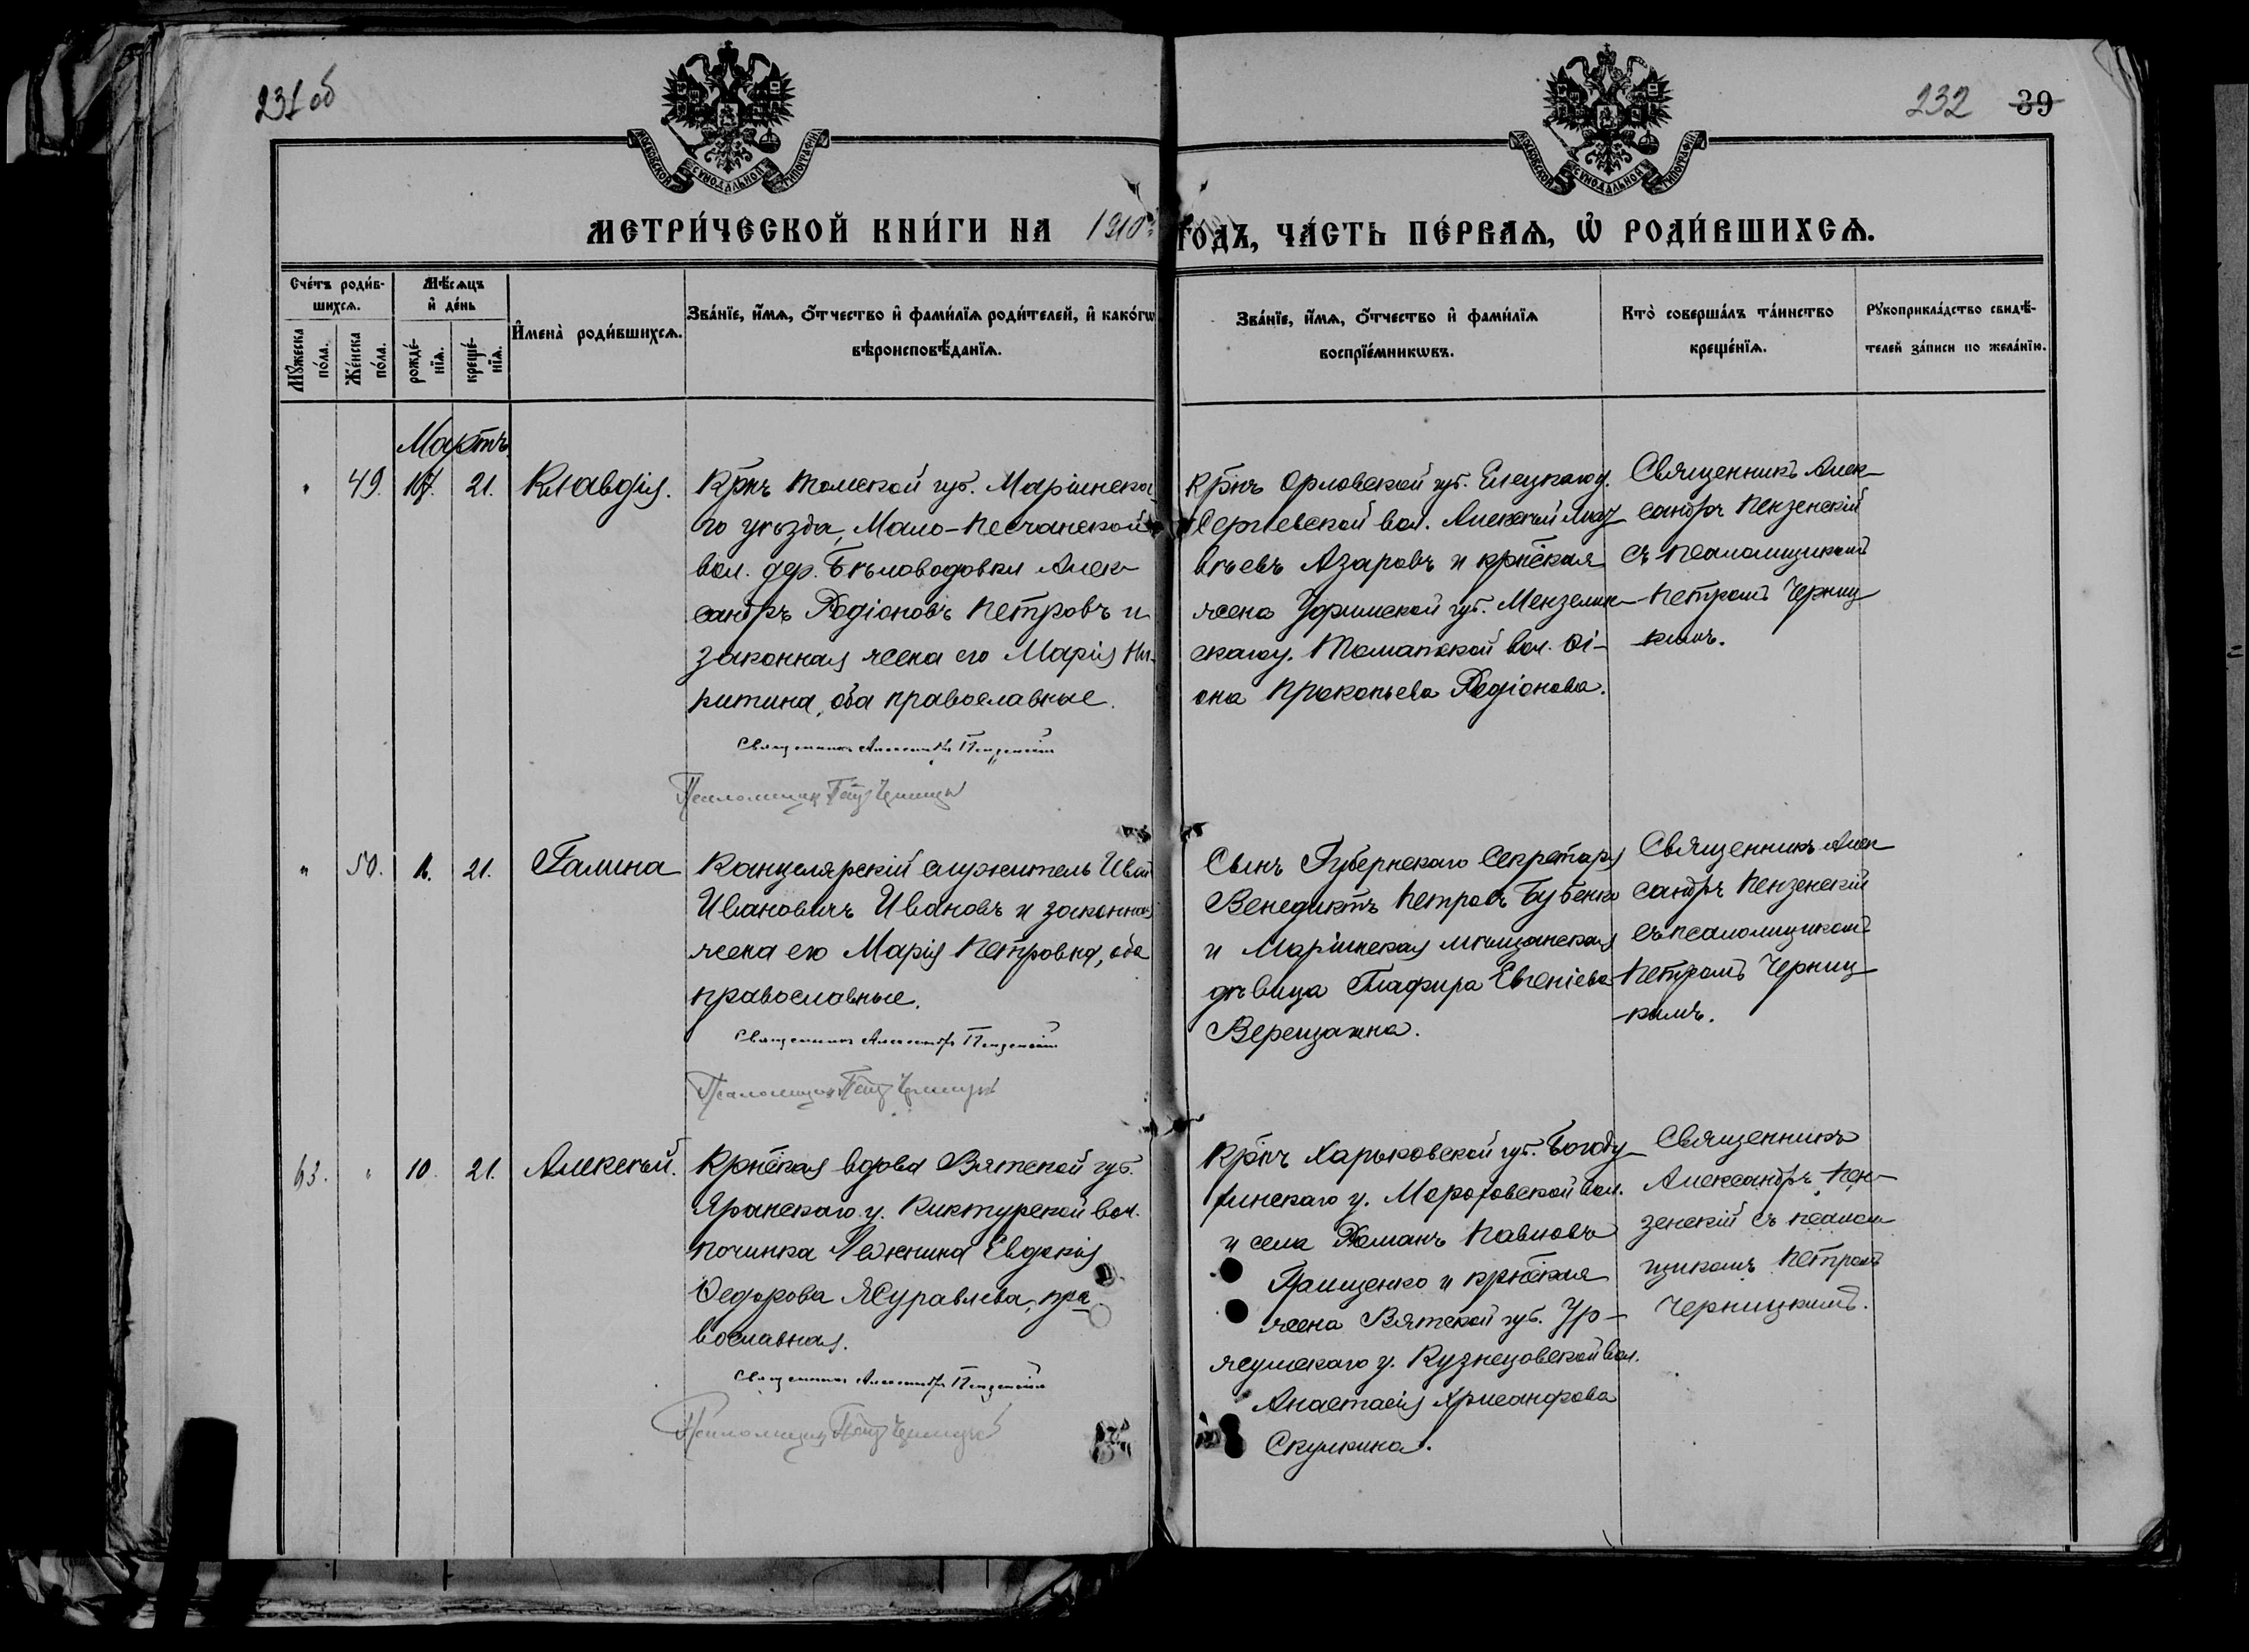 231 об
232 39
МОСКОВСКОЙ СѴНОДАЛЬНОЙ ТИПОГРАФІИ
МОСКОВСКОЙ СѴНОДАЛЬНОЙ ТИПОГРАФІИ
МЕТРИ́ЧЕСКОЙ КНИ́ГИ НА 1910 ГОДЪ, ЧА́СТЬ ПЕ́РВАѦ, Ѡ҆ РОДИ́ВШИХСѦ.
Сче́тъ роди́в-
шихсѧ.
Мꙋ́жеска
по́ла.
Же́нска
по́ла.
Мѣ́сѧцъ
и҆ де́нь
рожде́-
нїѧ.
креще́-
нїѧ.
И҆мена̀ роди́вшихсѧ.
Зва́нїе, и҆́мѧ, ѻ҆́тчество и҆ фами́лїѧ роди́телей, и҆ како́гѡ
вѣроисповѣ́данїѧ.
Зва́нїе, и҆́мѧ, ѻ҆́тчество и҆ фами́лїѧ
воспрїе́мникѡвъ.
Кто̀ соверша́лъ та́инство
креще́нїѧ.
Рꙋкоприкла́дство свидѣ́-
телей за́писи по жела́нїю.
Мартъ
" 49. 21. Клавдія.
Крнъ Томской губ. Маріинска-
го уѣзда, Мало-Песчанской
вол. дер. Бѣловодовки Алек-
сандръ Родіоновъ Петровъ и
законная жена его Марія Ки-
рипина, оба православные.
Священникъ Александръ Пензенскій
Псаломщик Петр Черницкій
Крнъ Орловской губ. Елецкаго у.
Сергіевской вол. Алексѣй
Азаровъ и крнская
жена Уфимской губ. Мензелин-
скаго у. вол. Ѳі-
она Прокопьева Родіонова.
Священникъ Алек-
сандръ Пензенскій
съ псаломщикомъ
Петромъ Черниц-
кимъ.
" 50. 21. Галина
Канцелярскій служитель Иван
Ивановичъ Ивановъ и законная
жена его Марія Петровна, оба
православные.
Священникъ Александръ Пензенскій
Псаломщик Петр Черницкій
Сынъ Губернскаго Секретаря
Венедиктъ Петровъ Бубенко
и Маріинская мѣщанская
дѣвица Глафира Евгеніева
Верещагина.
Священникъ Алек
сандръ Пензенскій
съ псаломщикомъ
Петромъ Черниц-
кимъ.
63. " 10. 21. Алексѣй.
Крнская вдова Вятской губ.
Яранскаго у. Киктурской вол.
починка Евдокія
Ѳедорова Журавлева, пра
вославная.
Священникъ Александръ Пензенскій
Псаломщик Петр Черницкій
Крнъ Харьковской губ. Богоду-
и села Романъ Павловъ
Грищенко и крнская
жена Вятской губ. Ур-
жумскаго у. Кузнецовской вол.
Анастасія Хрисанфова
Скулкина.
Священникъ
Александръ Пен-
зенскій съ псалом-
щикомъ Петромъ
Черницкимъ.